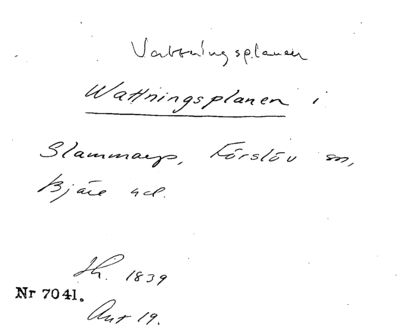 Vattningsplanen
Wattningsplanen i
Slammarp, Förslöv sn,
Bjäre hd.
Sh. 1839
Nr 7041.
Akt 19.